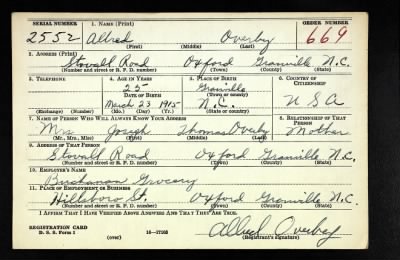 SERIAL NUMBER 1. NAME (Print) ORDER NUMBER
2552 Alfred Overby 669
(First) (Middle) (Last)
2. ADDRESS (Print)
Stovall Road Oxford Granville N.C.
(Number and street or R. F. D. number) (Town) (County) (State)
3. TELEPHONE 4. AGE IN YEARS 5. PLACE OF BIRTH 6. COUNTRY OF CITIZENSHIP
25 Granville
DATE OF BIRTH (Town or county)
March 23 1915 N.C. USA
(Exchange) (Number) (Mo.) (Day) (Yr.) (State or country)
7. NAME OF PERSON WHO WILL ALWAYS KNOW YOUR ADDRESS 8. RELATIONSHIP OF THAT PERSON
Mrs Joseph Thomas Overby Mother
(Mr., Mrs., Miss) (First) (Middle) (Last)
9. ADDRESS OF THAT PERSON
Stovall Road Oxford Granville N.C.
(Number and street or R. F. D. number) (Town) (County) (State)
10. EMPLOYER'S NAME
Buchanan Grocery
11. PLACE OF EMPLOYMENT OR BUSINESS
Hillsboro St. Oxford Granville N.C.
(Number and street or R. F. D. number) (Town) (County) (State)
I AFFIRM THAT I HAVE VERIFIED ABOVE ANSWERS AND THAT THEY ARE TRUE.
REGISTRATION CARD Alfred Overby
D. S. S. Form 1 (over) 16—17105 (Registrant's signature)